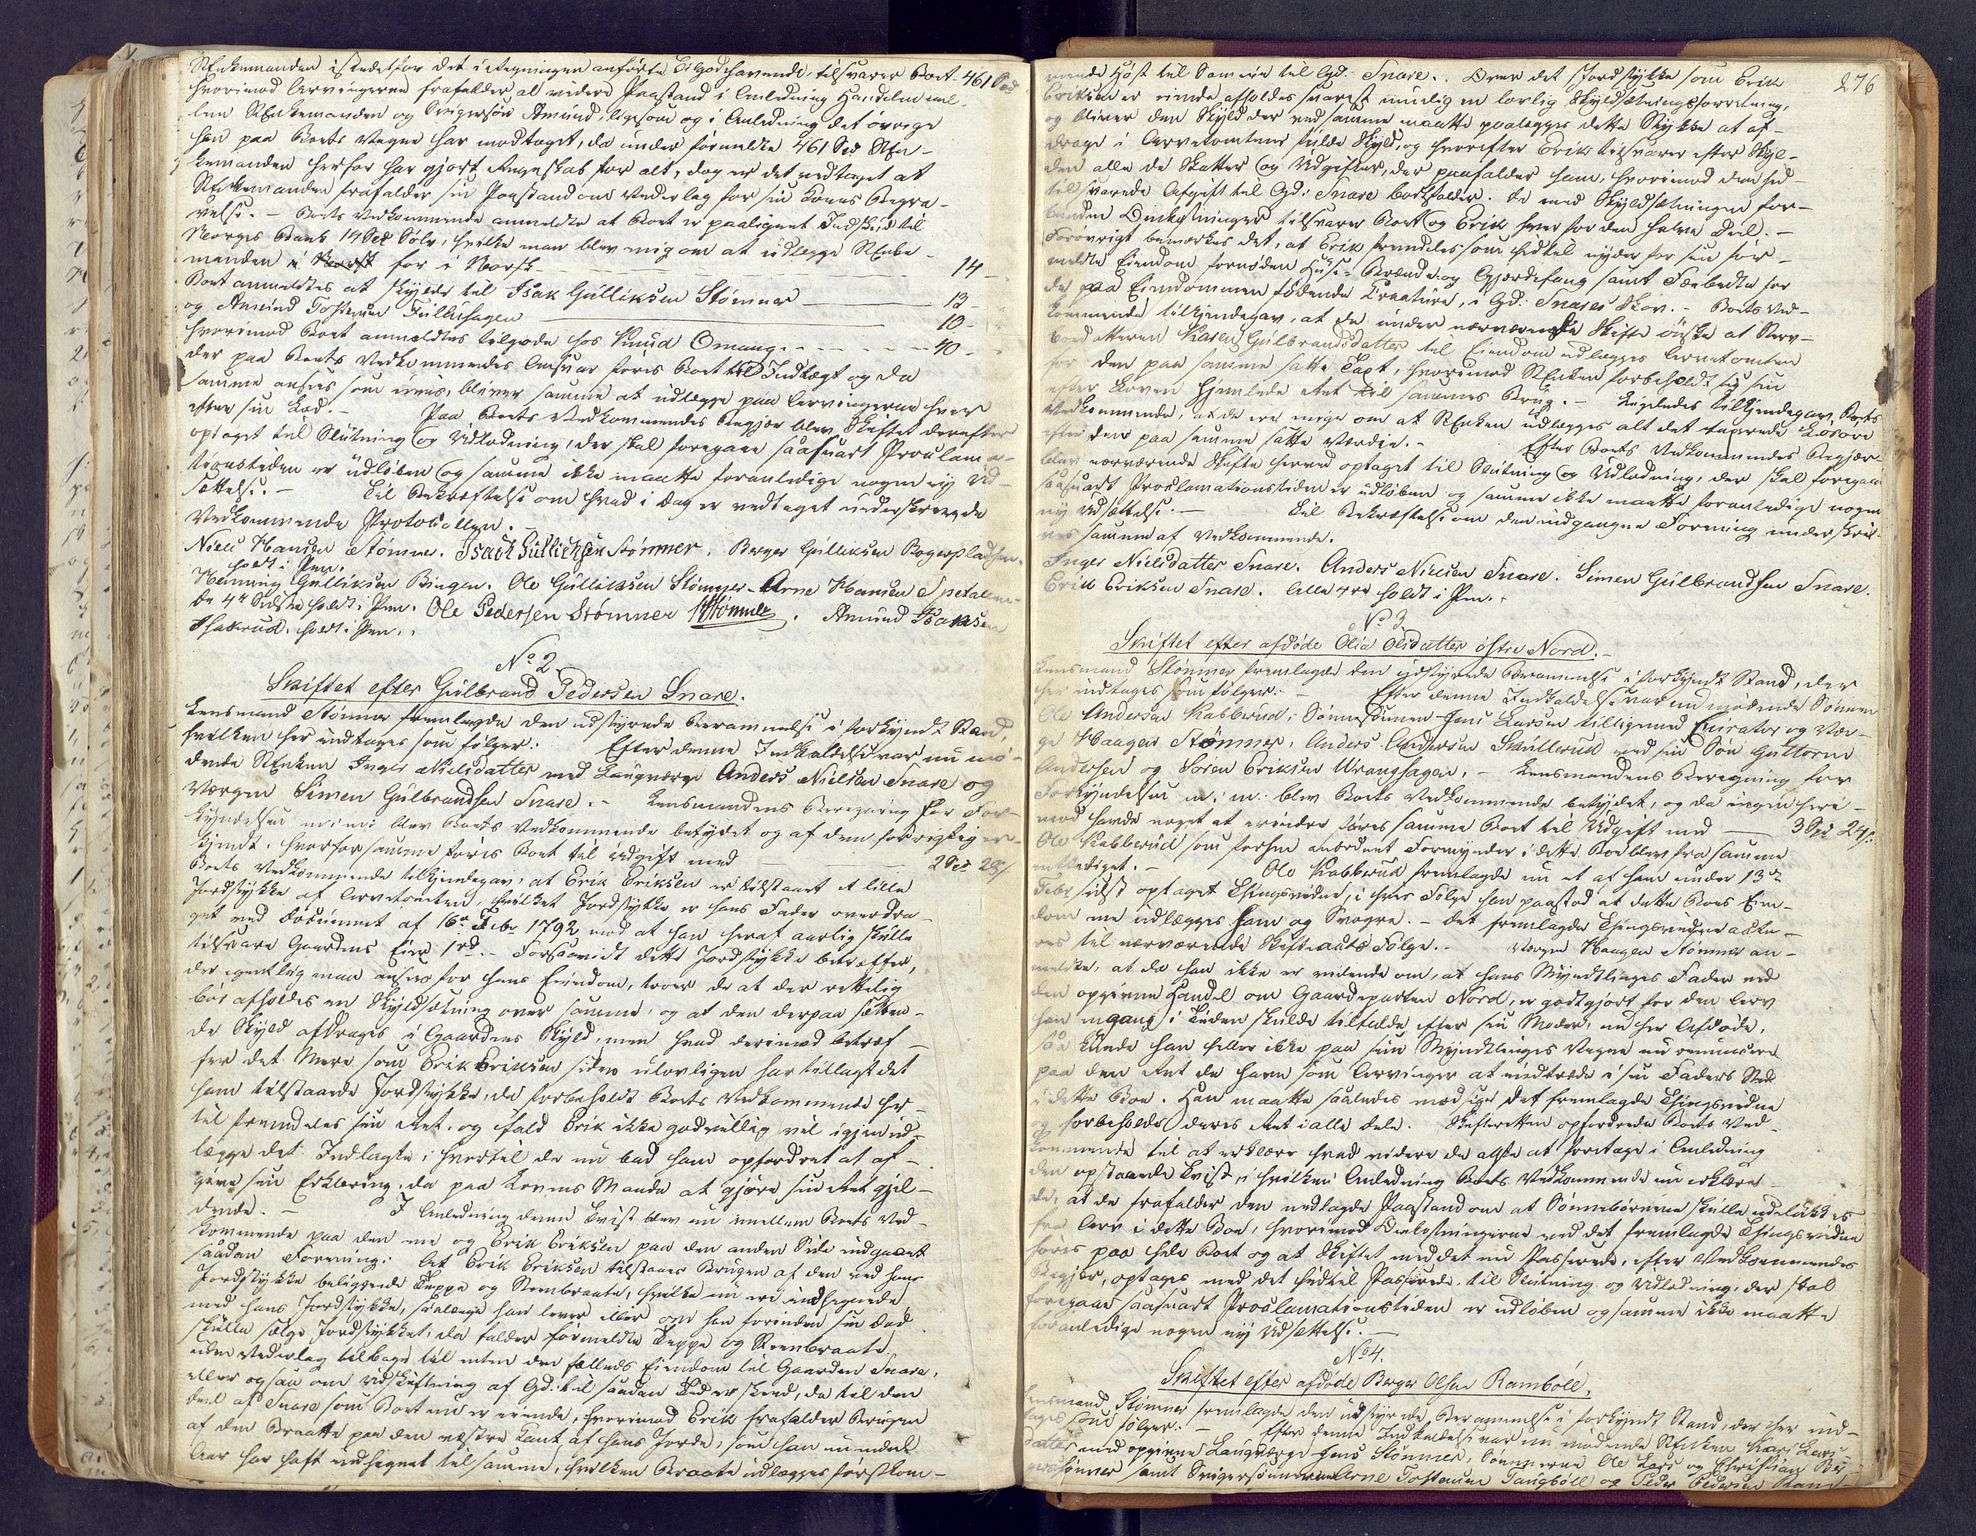 Enkemanden istedetfor det i tegningen anførte Tilgodehavende, tilsvarer Boet 461 Spd
hvorimod Arvingerne frafalder al videre Paastand i Anledning Handelen mel-
len Enkemanden og Svigersøn Amund, ligesom og i Anledning det øvrige
han paa Boets Vegne har modtaget, da under formeldte 461 Spd En-
kemanden herfor har gjort Regnskab for alt, dog er det vedtaget at
Enkemanden frafalder sin Paastand om Vederlag for sin Kones Begra-
velse. - Boets Vedkommende anmeldte at Boet er paalignet Indskud til
Norges Bank 14 Spd Sølv, hvilke man blev enig om at udlegge Enke-
manden for i Norsk 14 -
Boet anmeldtes at skylde til Isak Gulliksen Stømner 13 -
og Amund Fullehagen 10 -
hvorimod Boet anmeldtes tilgode hos Knud Omang 40 -
der paa Boets Vedkommendes Ansvar føris Boet til Indtægt og da
samme ansees som uvis, bliver samme at udlegge paa Arvingerne hver
efter sin Lod. - Paa Boets Vedkommendes Begjær blev Skiftet derefter
optaget til Slutning og Udlodning, der skal foregaae saasnart Proclama-
tionstiden er udløben og samme ikke maatte foranledige nogen ny Ud-
sættelse. - Til Bekræftelse om hvad i dag er vedtaget underskrev de
Vedkommende Protocollen.
Niels Hansen Stømner. Isach Gullichsen Stømner. Berger Gulliksen Bogerpladsen.
holdt i Pen.
Henning Gulliksen Bingen. Ole Gulliksen Stømner. Arne Hansen Spetalen
de 4re Sidste holdt i Pen. Ole Pedersen Stømner HStømner. Amund Isaksen
holdt i Pen.
No 2
Skiftet efter Gulbrand Pedersen Snare.
Lensmand Stømner fremlagde den udstyrede Berammelse i forkyndt Stand,
hvilken her indtages som følger: Efter denne Indkaldelse var nu mø-
dende Enken Inger Nielsdatter med Laugværge Anders Nielsen Snare og
Værgen Simen Gulbrandsen Snare. - Lensmandens Beregning for For-
kyndelsen m: m: blev Boets Vedkommende betydet og af dem for rigtig er-
kjendt, hvorfor samme føris Boet til Udgift med 2 Spd
Boets Vedkommende tilkjendegav, at Erik Eriksen er tilstaaet et lille
Jordstykke af Arvetomten, hvilket Jordstykke er hans Fader overdra-
get ved Document af 16de Febr 1792 mod at han heraf aarlig skulle
tilsvare Gaardens Eier 1rd. - Forsaavidt dette Jordstykke betreffer,
der egentlig man anseer for hans Eiendom, troer de at der rettelig
bør afholdes en Skyldsætning over samme, og at den derpaa sætten-
de Skyld afdrages i Gaardens Skyld, men hvad derimod betref-
fer det Mere som Erik Eriksen siden ulovligen har tillagt det
ham tilstaaede Jordstykke, da forbeholdt Boets Vedkommende her-
til fremdeles sin Ret, og ifald Erik ikke godvillig vil igjen ud-
lægge det Indlagte, hvortil de nu bad ham opfordret at af-
give sin Erklæring, da paa Lovens Maade at gjøre sin Ret gjel-
dende. - I Anledning denne Tvist blev nu imellem Boets Ved-
kommende paa den ene og Erik Eriksen paa den anden Side indgaaet
saadan Forening: At Erik Eriksen tilstaaes Brugen af den ved hans
Jordstykke beliggende Teppe og Steenbraate, hvilke nu ere indhegnede
med hans Jordstykke, saalænge han lever eller om han forinden sin Død
skulle sælge Jordstykket, da falder formeldte Teppe og Steenbraate
uden Vederlag tilbage til enten den fælleds Eiendom til Gaarden Snare,
eller ogsaa om Udskiftning af Gd: til saadan Tid er skeed, da til den
Deel af Snare som Boet nu er eiende, hvorimod Erik frafalder Brugen
af den Braatte paa den vestre Kant af hans Jorde, som han nu endeel
Aar har haft indhegnet til samme, hvilken Braate udlægges førstkom-
276
mende Høst til Sameie til Gd: Snare. Over det Jordstykke som Erik
Eriksen er eiende afholdes snarest muelig en lovlig Skyldsætningsforretning,
og bliver den Skyld der ved samme maatte paalegges dette Stykke at af-
drage i Arvetomtens fulde Skyld, og hvorefter Erik tilsvarer efter Skyl-
den alle de Skatter og Udgifter, der paafalder ham, hvorimod den hid
til svarede Afgift til Gd: Snare bortfalder. De med Skyldsætningen for-
bundne Omkostninger tilsvarer Boet og Erik hver for den halve Deel. -
Forøvrigt bemærkes det, at Erik fremdeles som hidtil nyder for sin for-
meldte Eiendom fornøden Huse- Brænde- og Gjerdefang samt Fæebeite for
de paa Eiendommen fødende Creature, i Gd: Snares Skov. - Boets Ved-
kommende tilkjendegav, at de under nærværende Skifte ønske at Arv-
Karen Gulbrandsdatter til Eiendom udlægges Arvetomten
for den paa samme satte Taxt, hvorimod Enken forbeholdt sig sin
efter Loven hjemlede Ret til sammes Brug. - Ligeledes tilkjendegav Boets
Vedkommende, at de ere enige om at Enken udlegges alt det taxerede Løsøre
efter den paa samme satte Værdie. - Efter Boets Vedkommendes Begjær-
blev nærværende Skifte herved optaget til Slutning og Udlodning, der skal foregaae
saasnart Proclamationstiden er udløben og samme ikke maatte foranledige nogen
ny Udsættelse. - Til Bekræftelse om den indgangne Forening underskri-
ves samme af Vedkommende.
Inger Nielsdatter Snare. Anders Nielsen Snare. Simen Gulbrandsen Snare.
Erik Eriksen Snare. Alle 4re holdt i Pen.
No 3
Skiftet efter afdøde Olia Olsdatter østre Nord.
Lensmand Stømner fremlagde den udstyrede Berammelse i forkyndt Stand, der
her indtages som følger: - Efter denne Indkaldelse var nu mødende Sønnen
Ole Andersen Kabberud, Sønnesønnen Jens Larsen tilligemed Curator og Vær-
ge Haagen Stømner, Anders Andersen Skullerud med sin Søn Guttorm
Andersen og Søren Eriksen Wranghagen. - Lensmandens Beregning for
Forkyndelsen m: m: blev Boets Vedkommende betydet, og da ingen heri-
mod havde noget at erindre føres samme Boet til Udgift med 3 Spd 24 s:
Ole Kabberud som forhen anordnet Formynder i dette Boe blev fra samme
entlediget. - Ole Kabberud fremlagde nu et af ham under 13de
Febr sidst optaget Thingsvidne, i hvis Følge han paastod at dette Boes Eien-
dom maa udlægges ham og Svogre. - Det fremlagde Thingsvidne acte-
res til nærværende Skifteacts Følge. - Værgen Haagen Stømner an-
meldte, at da han ikke er vidende om, at hans Myndtlinges Fader ved
den opgivne Handel om Gaardeparten Nord, er godtgjort for den Arv
han engang i Tiden skulde tilfalde efter sin Moder, nu her Afdøde,
saa kunde han heller ikke paa sin Myndtlinges Vegne nu renuncere
paa den Ret de have som Arvinger at indtræde i sin Faders Sted
i dette Boe. Han maatte saaledes modsige det fremlagde Thingsvidne
og forbeholde deres Ret i alle Dele. Skifteretten opfordrede Boets Ved-
kommende til at erklære hvad videre de agte at foretage i Anledning
den opstaaede Tvist, i hvilken Anledning Boets Vedkommende nu erklære-
de, at de frafalder den nedlagde Paastand om at Sønnebørnene skulle udelukkes
fra Arv i dette Boe, hvorimod Omkostningerne ved det fremlagde Thingsvidne
føres paa hele Boet og at Skiftet med det nu Passerede, efter Vedkommendes
Begjær, optages med det hidtil Passerede, til Slutning og Udlodning, der skal
foregaae saasnart Proclamationstiden er udløben og samme ikke maatte
foranledige nogen ny Udsættelse. -
No 4.
Skiftet efter afdøde Berger Olsen Ramböle.
Lensmand Stømner fremlagde den udstyrede Berammelse i forkyndt Stand, der her ind-
tages som følger. - Efter denne Indkaldelse var nu mødende Enken Kari Lars-
datter med opgivne Laugværge Jens Stømner, Sønnerne Ole Lars og Christian Ber-
gersønner samt Svigersønnerne Arne Tostensen Taugböll og Peder Pedersen Ram-